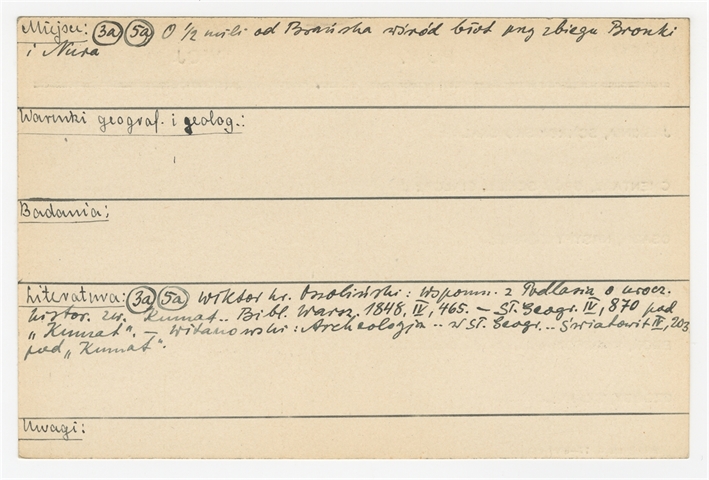 Miejsce: 3a 5a O 1/2 mili od Brańska wśród błot przy zbiegu Bronki
i Nurca
Warunki geograf. i geolog.:
Badania:
Literatura: 3a 5a Wiktor hr. Ossoliński: Wspomn. z Podlasia o urocz.
histor. zw. Kumat.. Bibl. Warsz. 1848, IV, 465. — Sł. Geogr. IV, 870 pod
„Kumat". — Witanowski: Archeologia .. w Sł. Geogr... Światowit IV, 203
pod „Kumat".
Uwagi: